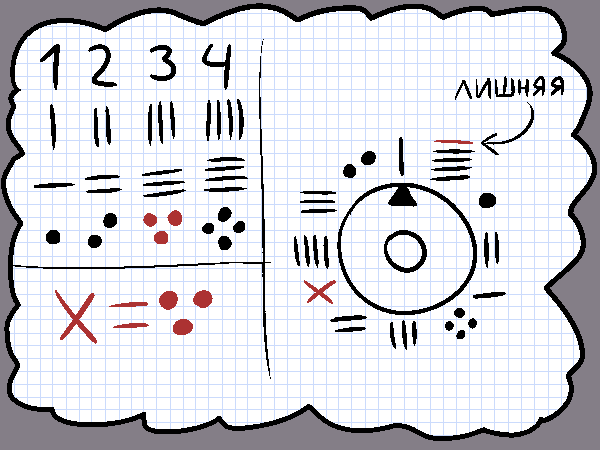 1 2 3 4
ЛИШНЯЯ
X =
X